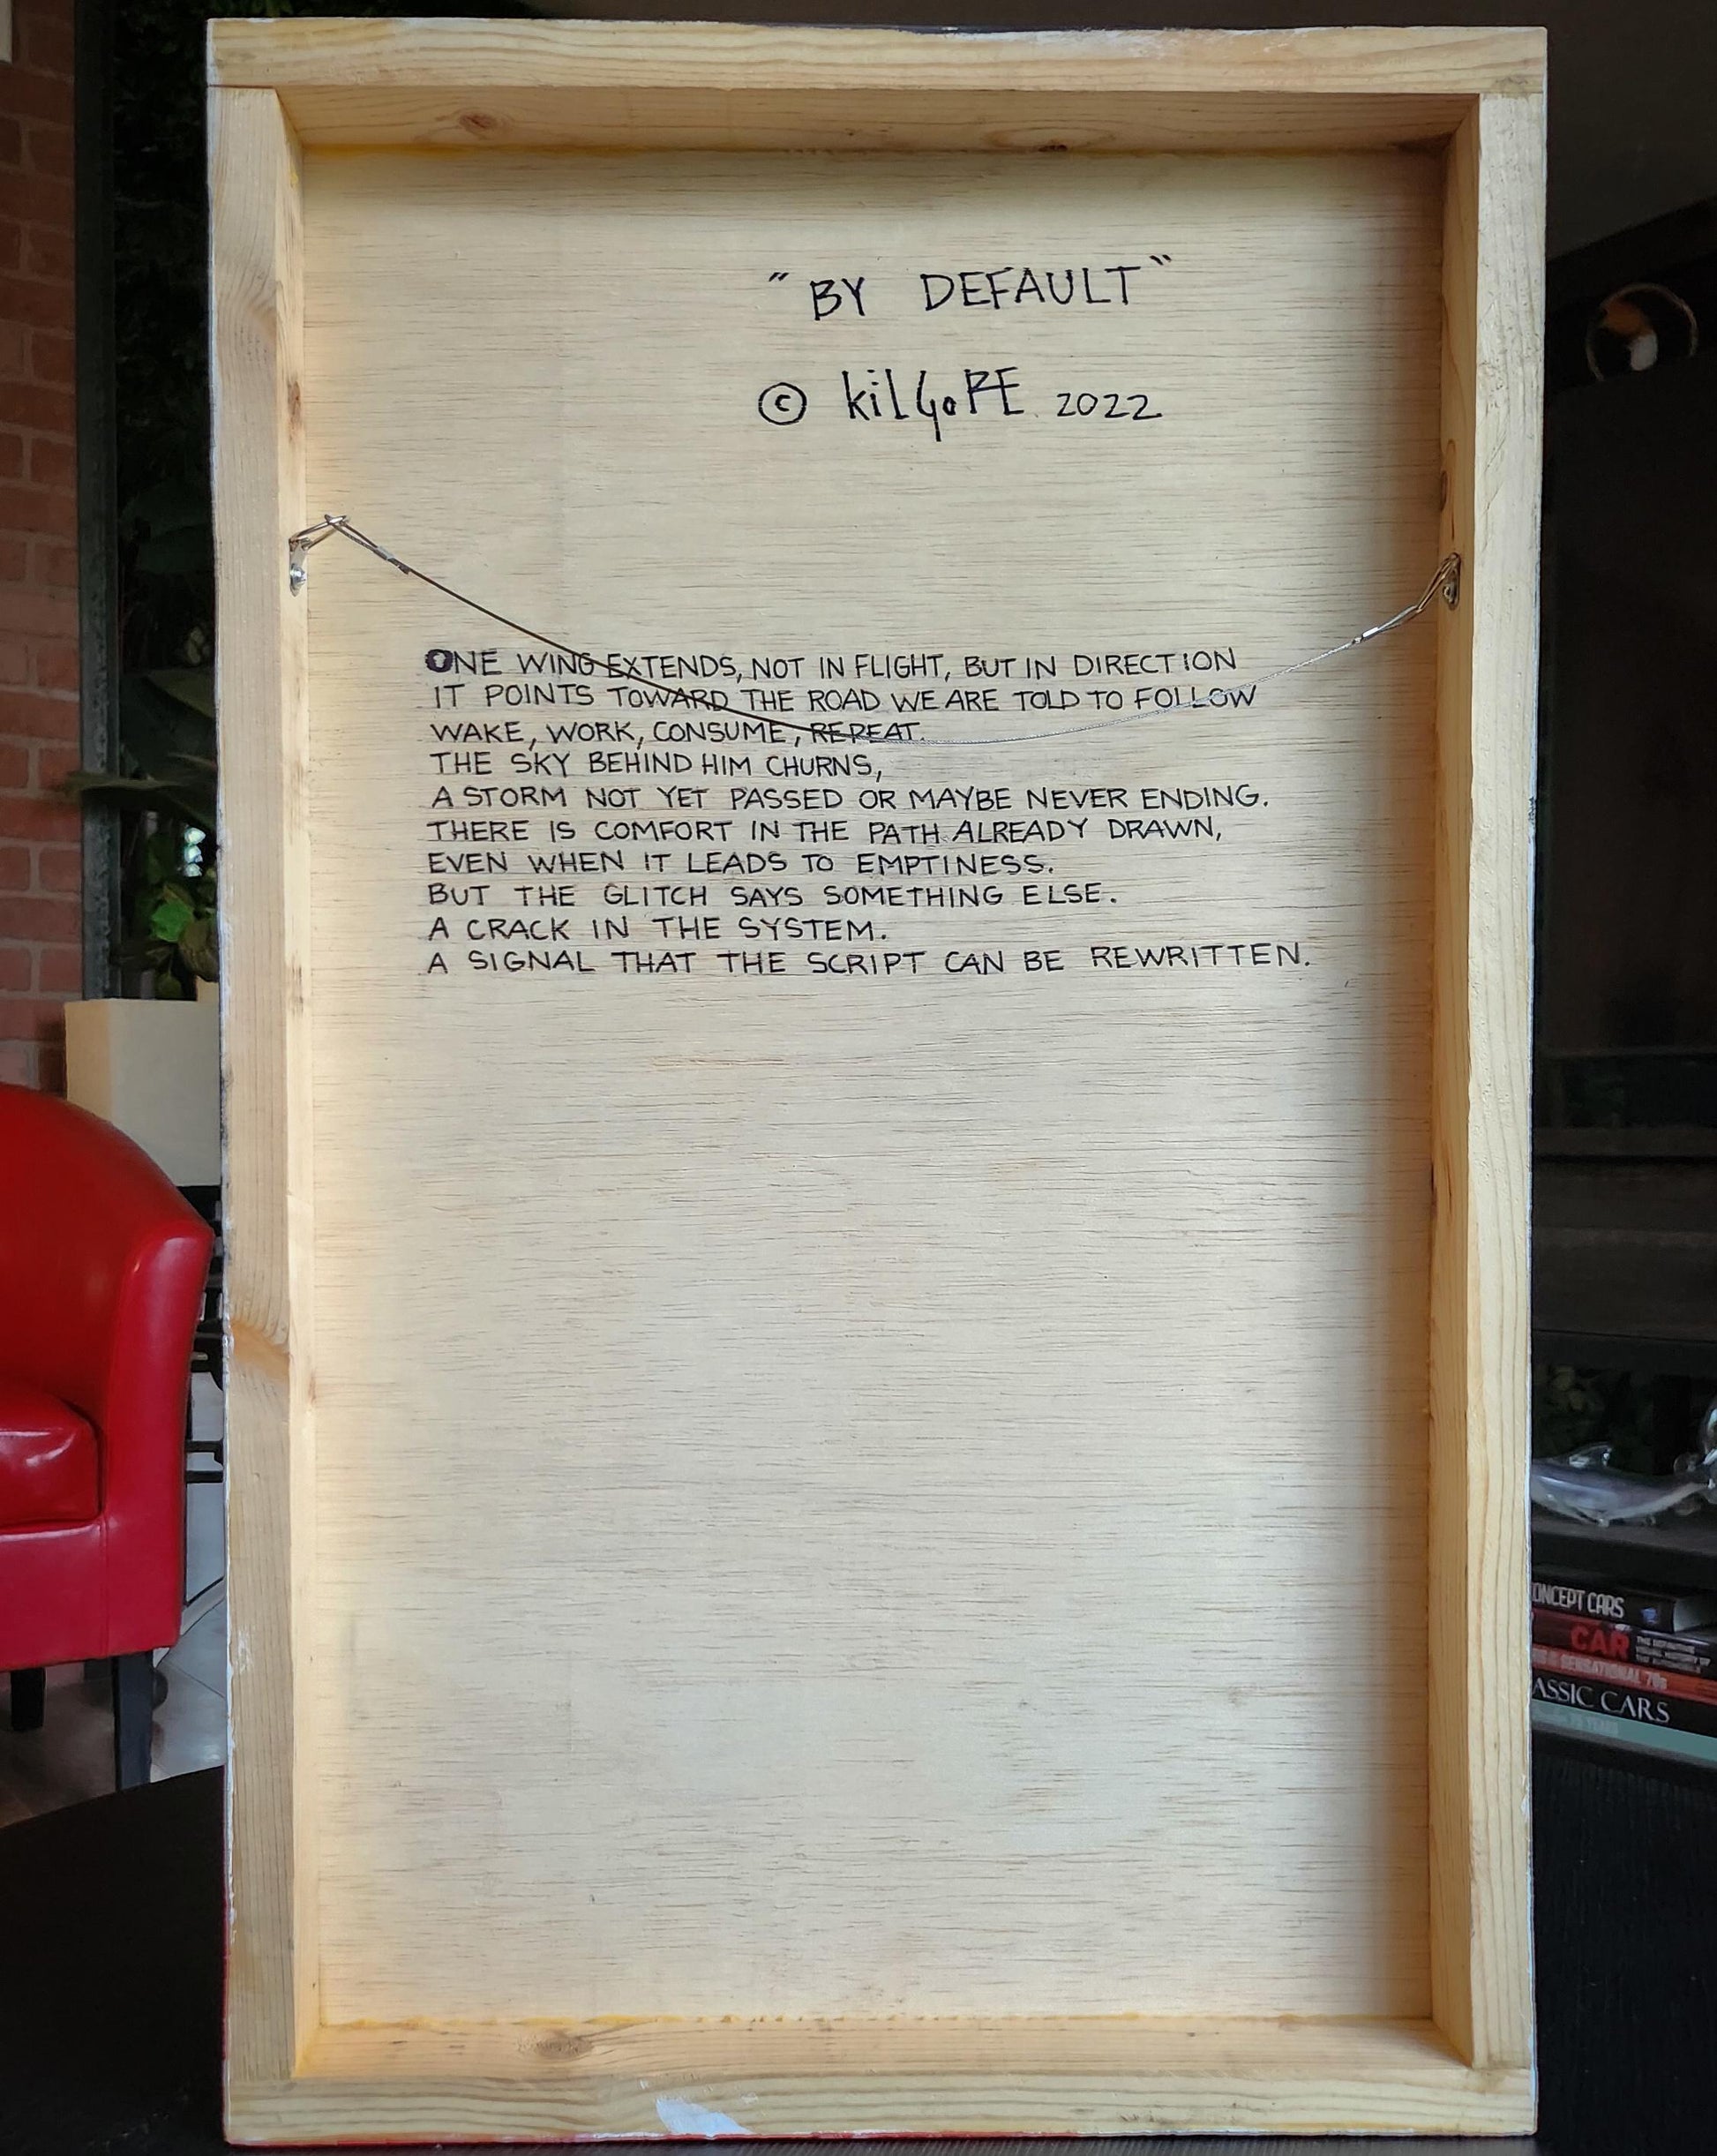 "BY DEFAULT"
© kilGoRE 2022
ONE WING EXTENDS, NOT IN FLIGHT, BUT IN DIRECTION
IT POINTS TOWARD THE ROAD WE ARE TOLD TO FOLLOW
WAKE, WORK, CONSUME, REPEAT.
THE SKY BEHIND HIM CHURNS,
A STORM NOT YET PASSED OR MAYBE NEVER ENDING.
THERE IS COMFORT IN THE PATH ALREADY DRAWN,
EVEN WHEN IT LEADS TO EMPTINESS.
BUT THE GLITCH SAYS SOMETHING ELSE.
A CRACK IN THE SYSTEM.
A SIGNAL THAT THE SCRIPT CAN BE REWRITTEN.
ONCEPT CARS
CAR
THE DEFINITIVE
VISUAL HISTORY OF
THE AUTOMOBILE
SENSATIONAL '70s
ASSIC CARS